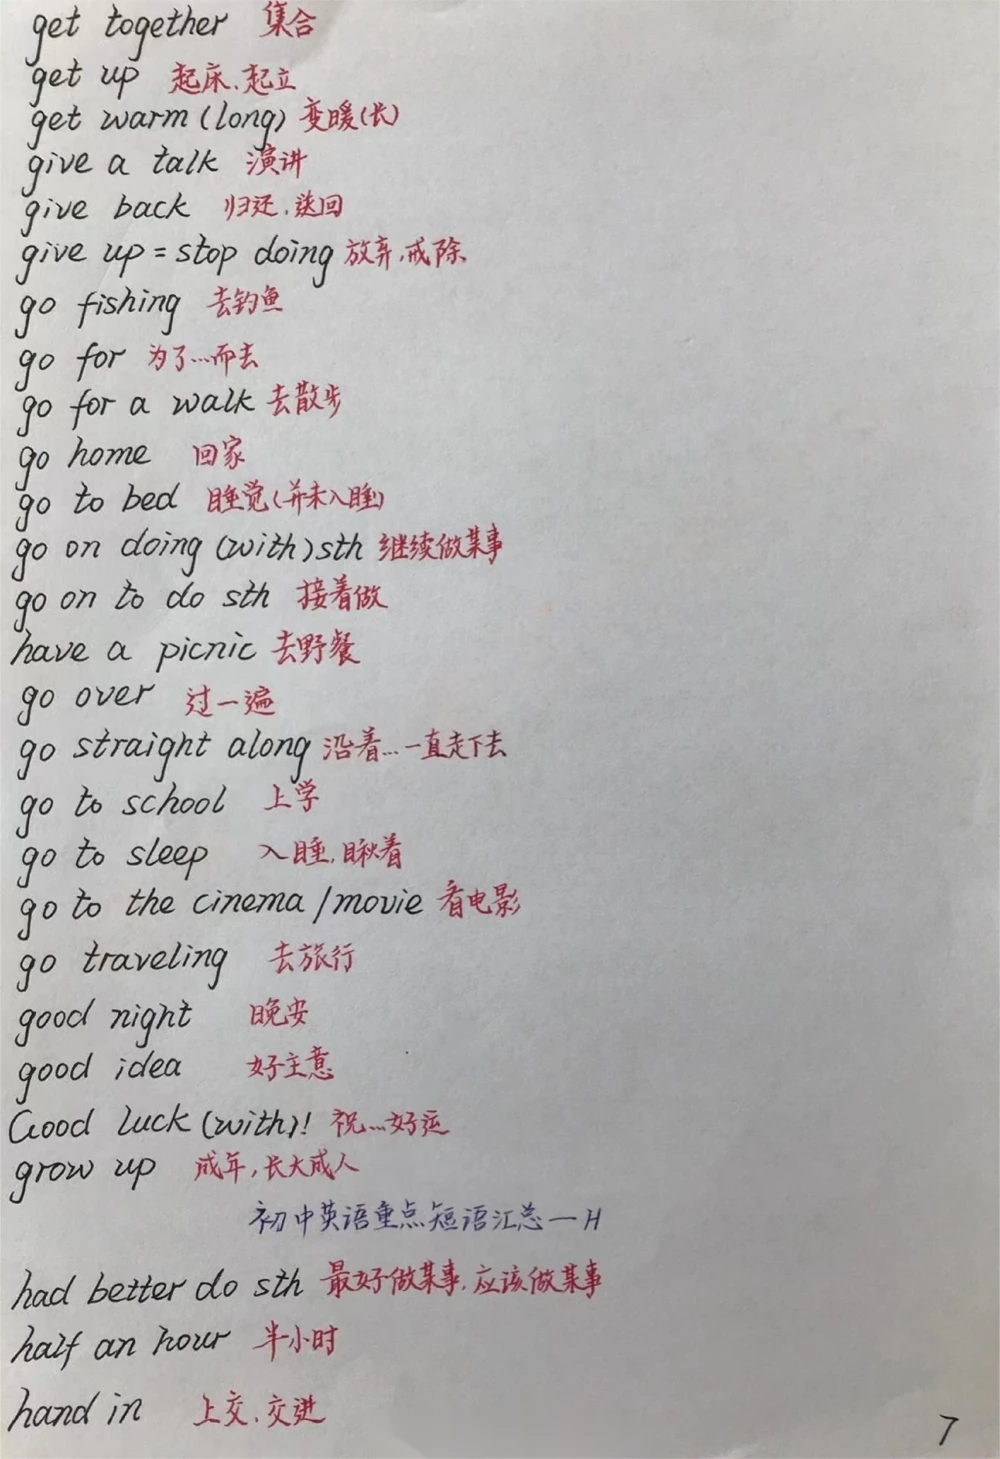 get together 集合
get up 起床、起立
get warm (long) 变暖(长)
give a talk 演讲
give back 归还、送回
give up = stop doing 放弃,戒除
go fishing 去钓鱼
go for 为了…而去
go for a walk 去散步
go home 回家
go to bed 睡觉(并未入睡)
go on doing (with) sth 继续做某事
go on to do sth 接着做
have a picnic 去野餐
go over 过一遍
go straight along 沿着…一直走下去
go to school 上学
go to sleep 入睡,瞅着
go to the cinema / movie 看电影
go traveling 去旅行
good night 晚安
good idea 好主意
Good luck (with)! 祝…好运
grow up 成年,长大成人
初中英语重点短语汇总一H
had better do sth 最好做某事,应该做某事
half an hour 半小时
hand in 上交、交进
7